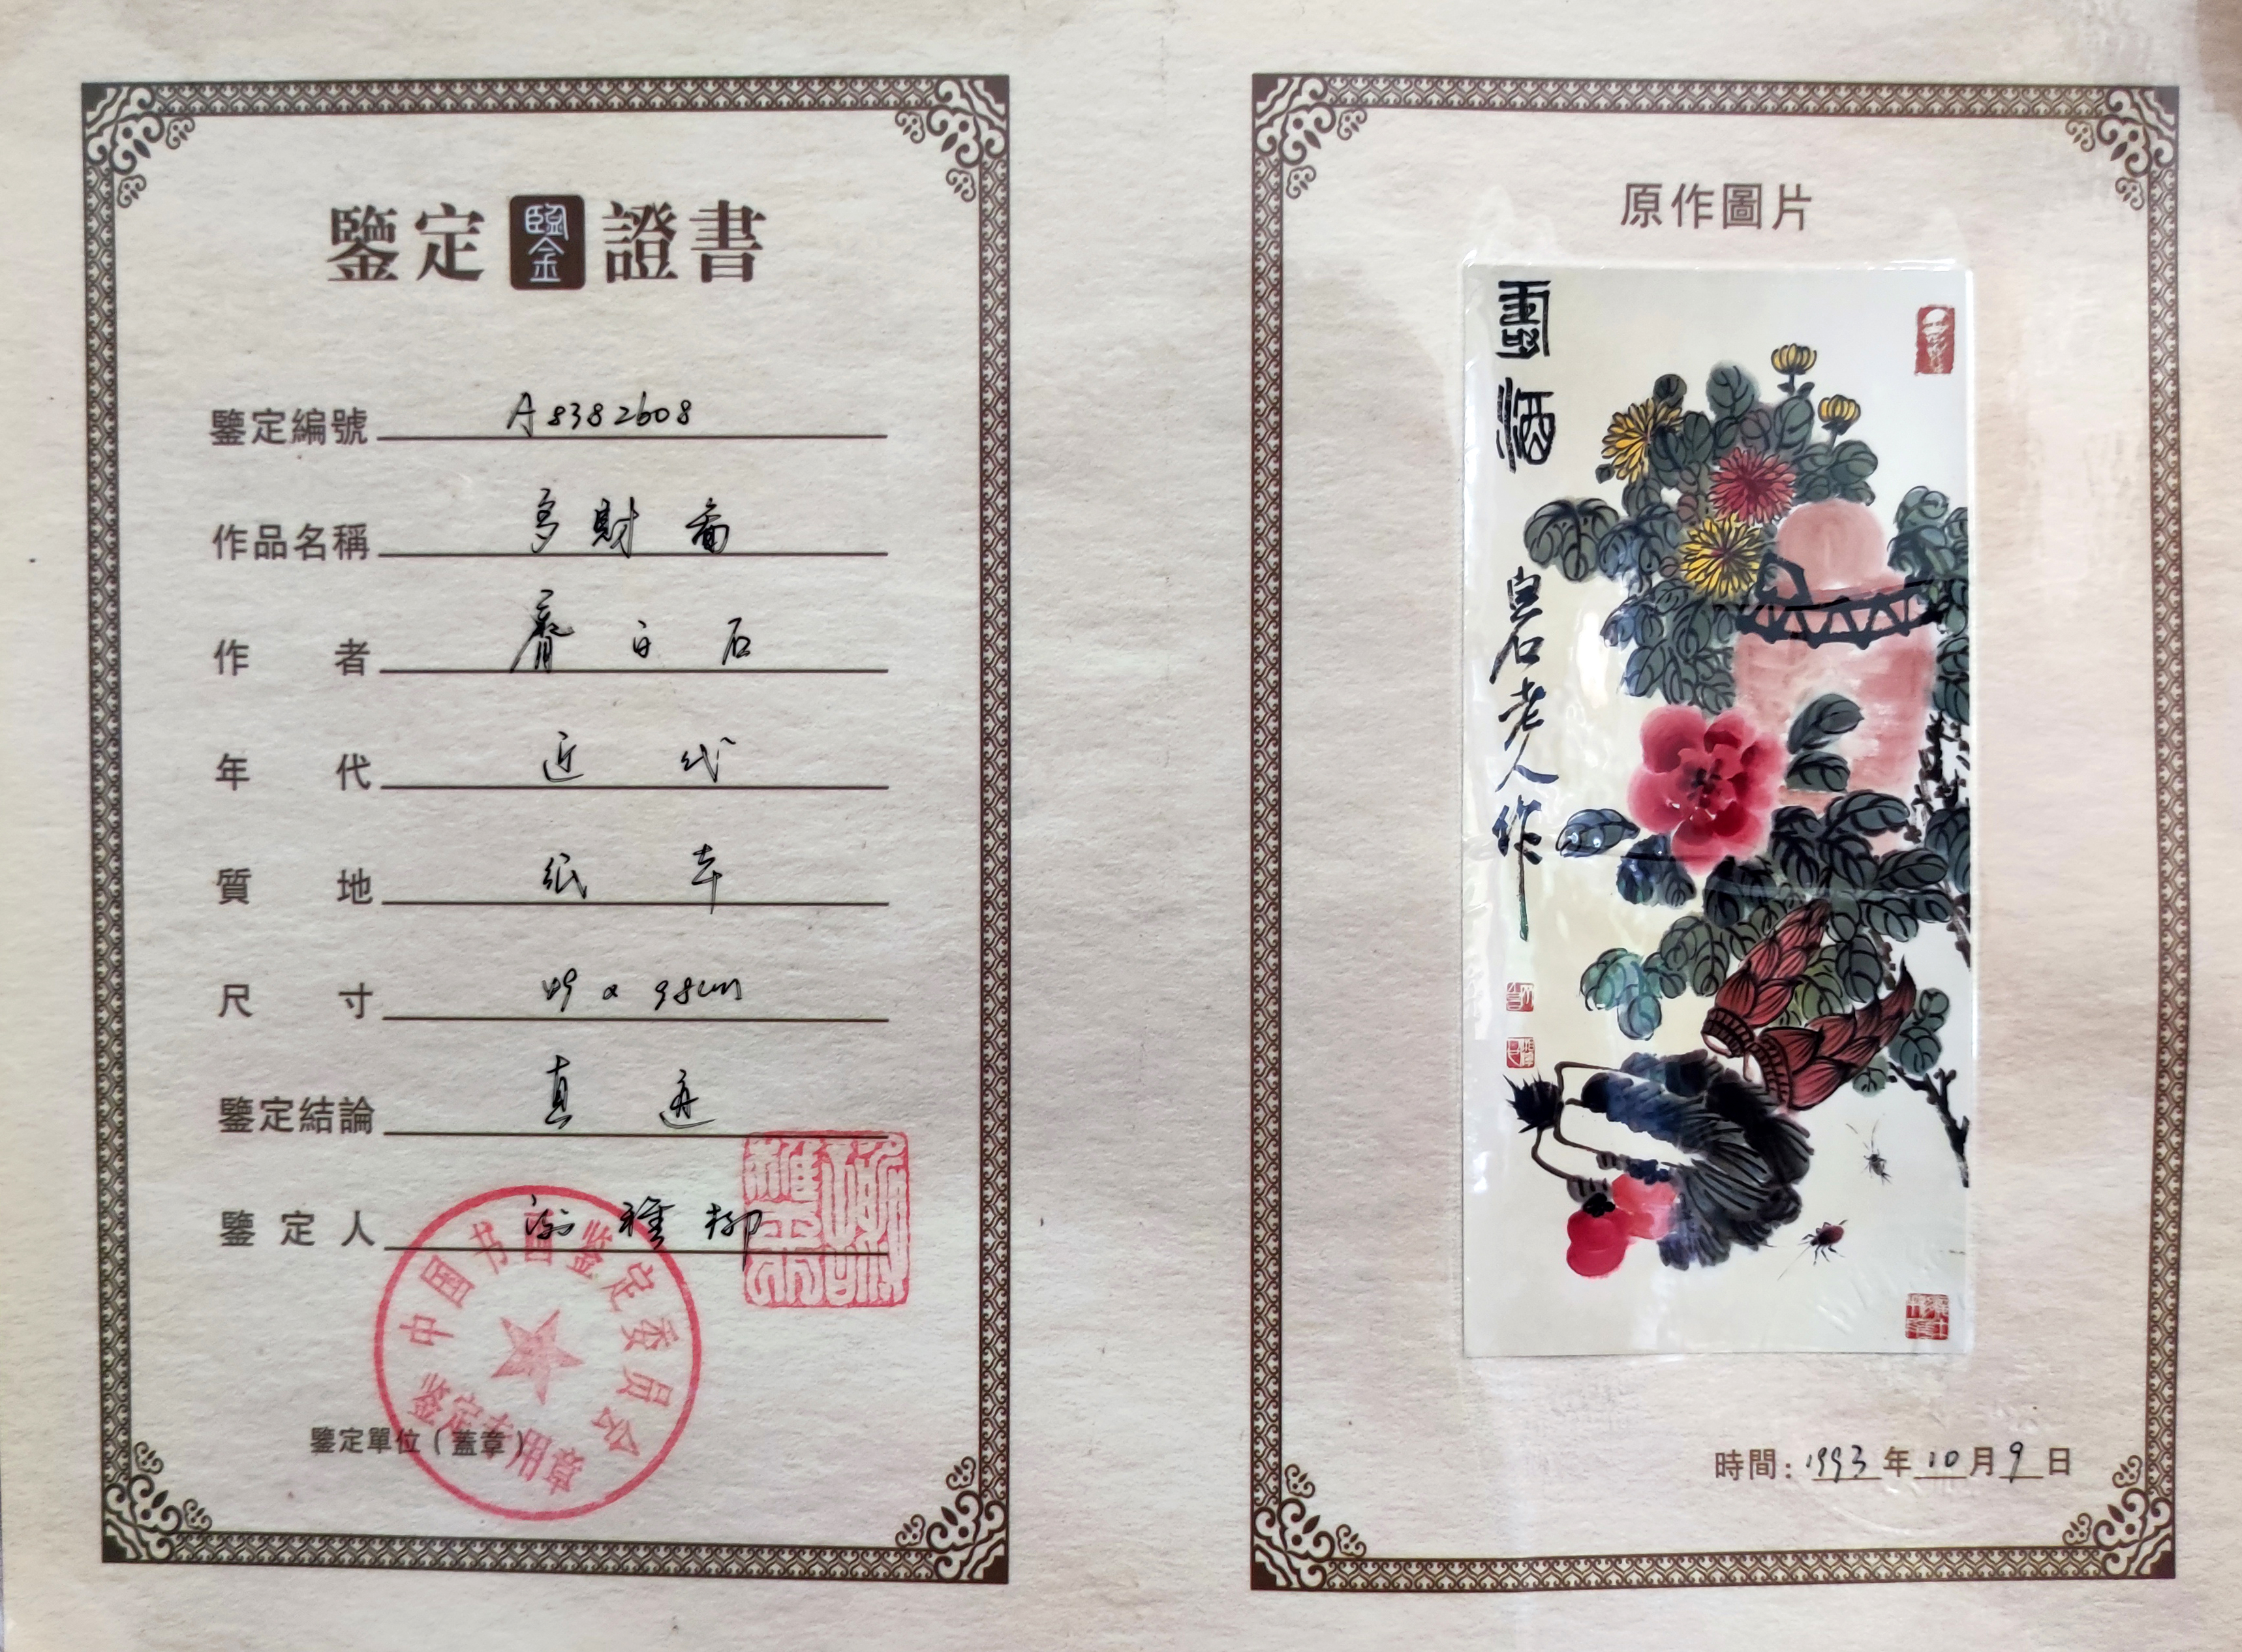 鑒定 鑒 證書
鑒定編號 A8382608
作品名稱 多財畐
作者 齊白石
年代 近代
質地 紙本
尺寸 49x98cm
鑒定結論 真迹
鑒定人 謝稚柳
中国书画鉴定委员会
鉴定专用章
鑒定單位（蓋章）
原作圖片
白石老人作
時間：1993年10月9日